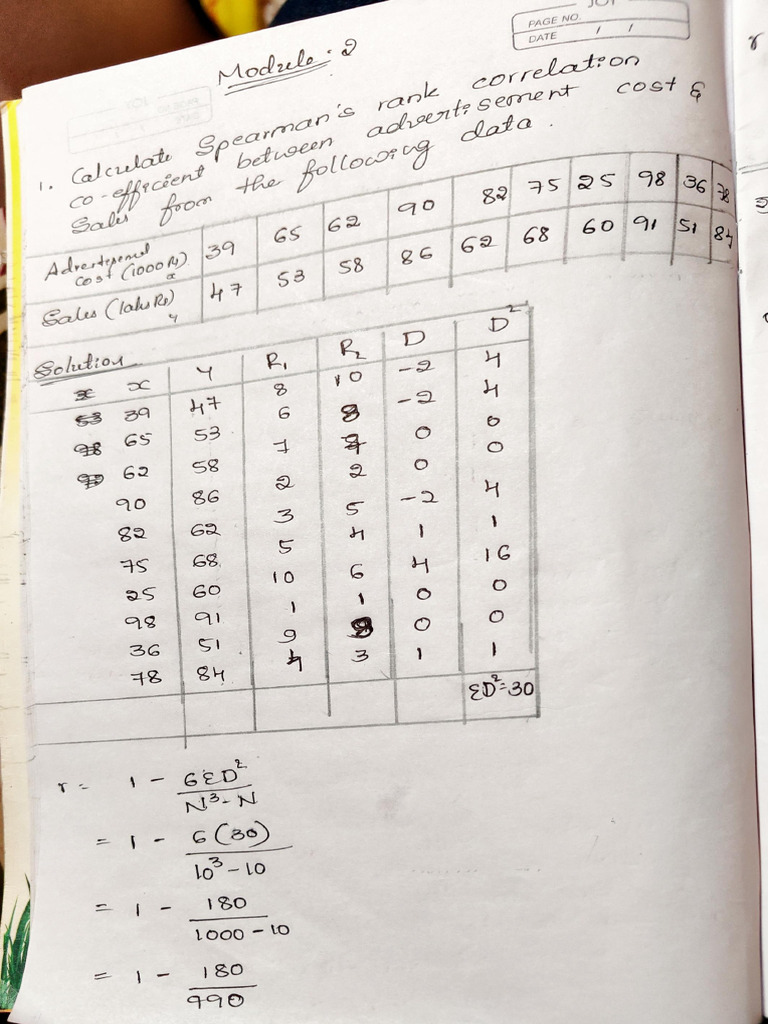 PAGE NO.
DATE / /
Module : 2
1. Calculate Spearman's rank correlation
co-efficient between advertisement cost &
Sales from the following data.
Advertisement cost (1000 Rs) x 39 65 62 90 82 75 25 98 36 78
Sales (lakhs Rs) y 47 53 58 86 62 68 60 91 51 84
Solution
x Y R₁ R₂ D D²
39 47 8 10 -2 4
65 53 6 8 -2 4
62 58 7 7 0 0
90 86 2 2 0 0
82 62 3 5 -2 4
75 68 5 4 1 1
25 60 10 6 4 16
98 91 1 1 0 0
36 51 9 9 0 0
78 84 4 3 1 1
ΣD²=30
r = 1 - 6ΣD² / N³-N
= 1 - 6(30) / 10³-10
= 1 - 180 / 1000-10
= 1 - 180 / 990